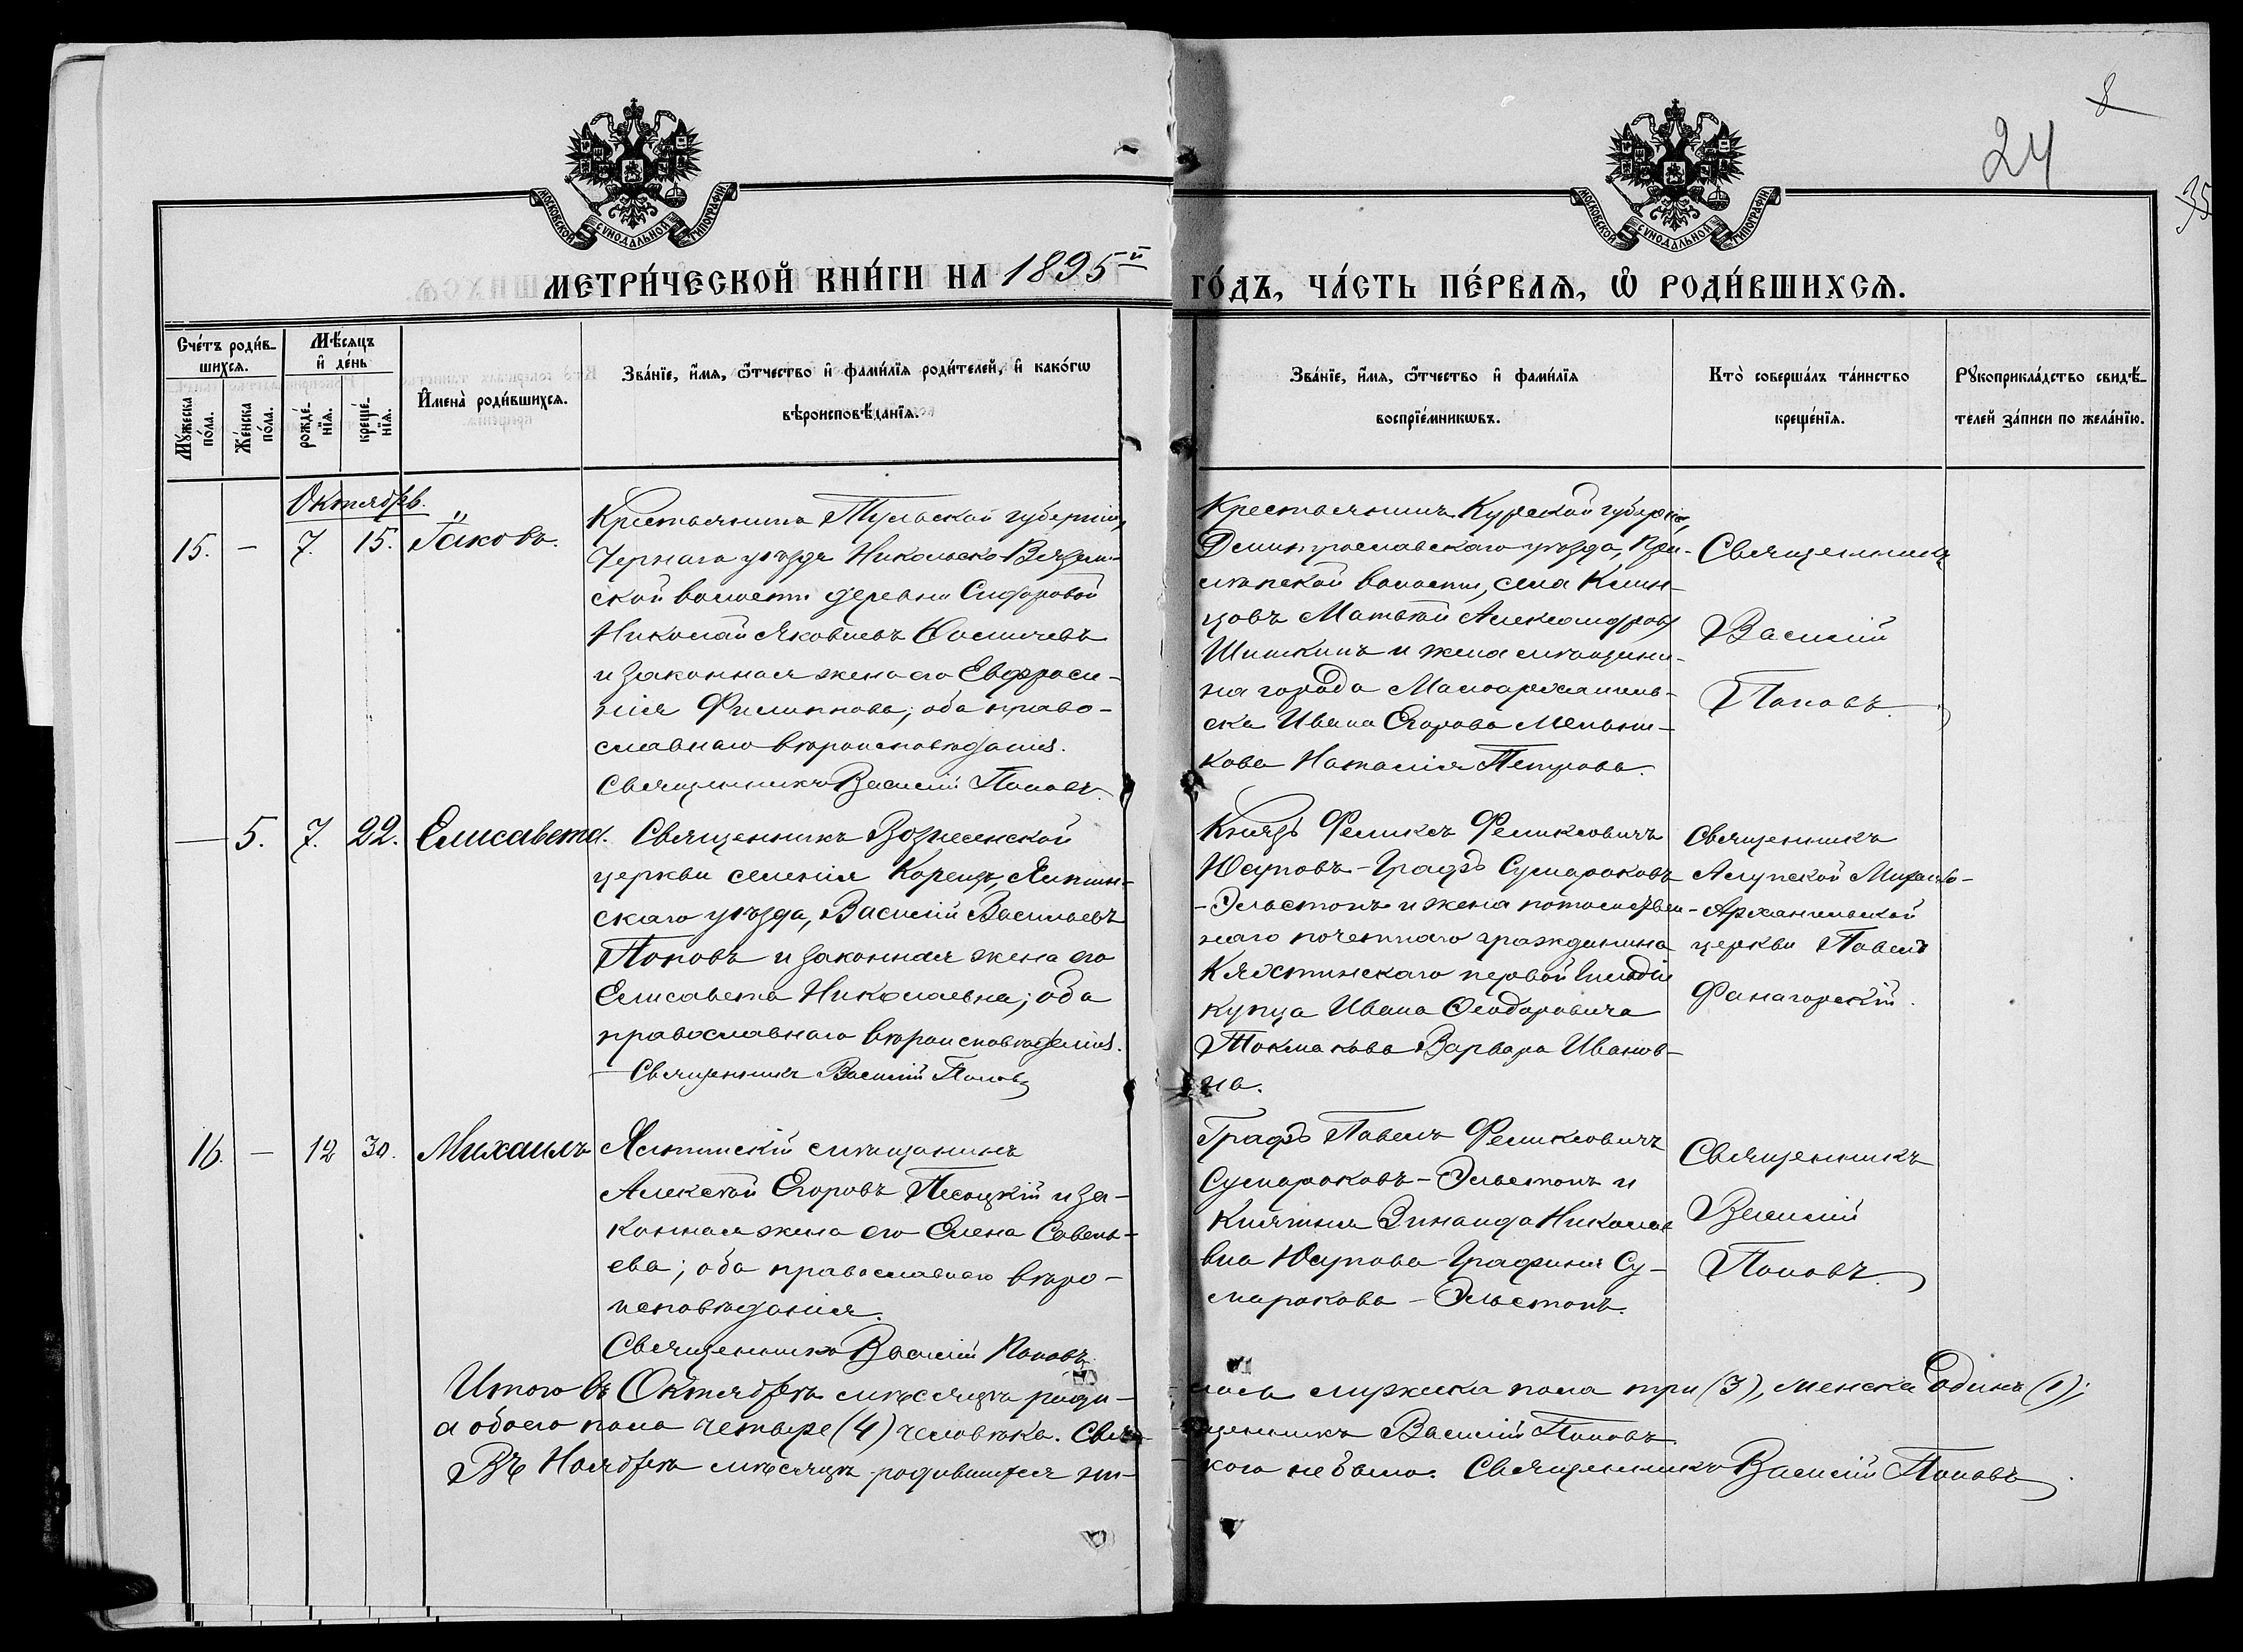 24
8
35
МОСКОВСКОЙ СѴНОДАЛЬНОЙ ТИПОГРАФІИ
МОСКОВСКОЙ СѴНОДАЛЬНОЙ ТИПОГРАФІИ
МЕТРИ́ЧЕСКОЙ КНИ́ГИ НА 1895й ГО́ДЪ, ЧА́СТЬ ПЕ́РВАЯ, Ѡ РОДИ́ВШИХСЯ.
Сче́тъ роди́в-
шихся.
Мѣ́сяцъ
и де́нь
Му́жеска по́ла.
Же́нска по́ла.
рожде́нїя.
креще́нїя.
Имена̀ роди́вшихся.
Зва́нїе, и́мя, ѻ҆́тчество и фами́лїя роди́телей, и како́гѡ
вѣроисповѣ́данїя.
Зва́нїе, и́мя, ѻ҆́тчество и фами́лїя
воспрїе́мникѡвъ.
Кто̀ соверша́лъ та́инство
креще́нїя.
Рꙋкоприкла́дство свидѣ́-
телей за́писи по жела́нїю.
Октябрь.
15. — 7. 15. Іаковъ.
Крестьянинъ Тульской губерніи,
Чернаго уѣзда Никольско-Вязем-
ской волости деревни Сидоровой
Николай Яковлевъ
и законная жена его Евфроси-
нія Филиппова; оба право-
славнаго вѣроисповѣданія.
Священникъ Василій Поповъ.
Крестьянинъ Курской губерніи,
уѣзда,
волости, села Клин-
цовъ Матвѣй Александровъ
Шишкинъ и жена мѣщани-
на города Малоархангель-
ска Ивана Егорова Мельни-
кова Наталія Петрова.
Священникъ
Василій
Поповъ.
— 5. 7. 22. Елисавета.
Священникъ Вознесенской
церкви селенія Кореизъ, Ялтин-
скаго уѣзда, Василій Васильевъ
Поповъ и законная жена его
Елисавета Николаевна; оба
православнаго вѣроисповѣданія.
Священникъ Василій Поповъ
Князь Феликсъ Феликсовичъ
Юсуповъ-Графъ Сумароковъ
-Эльстонъ и жена потомствен-
наго почетнаго гражданина
первой гильдіи
купца Ивана Ѳеодоровича
Токмакова Варвара Иванов-
на.
Священникъ
Алупской Михаило-
-Архангельской
церкви Павелъ
Фанагорскій.
16. — 12 30. Михаилъ
Ялтинскій мѣщанинъ
Алексѣй Егоровъ Песоцкій и за-
конная жена его Елена Савель-
ева; оба православнаго вѣро-
исповѣданія.
Священникъ Василій Поповъ
Графъ Павелъ Феликсовичъ
Сумароковъ-Эльстонъ и
Княгиня Зинаида Николае
вна Юсупова-Графиня Су-
марокова-Эльстонъ.
Священникъ
Василій
Поповъ.
Итого въ Октябрѣ мѣсяцѣ роди-лось мужска пола три (3), женска одинъ (1);
а обоего пола четыре (4) человѣка. Священникъ Василій Поповъ.
Въ Ноябрѣ мѣсяцѣ родившихся ни-кого не было. Священникъ Василій Поповъ.